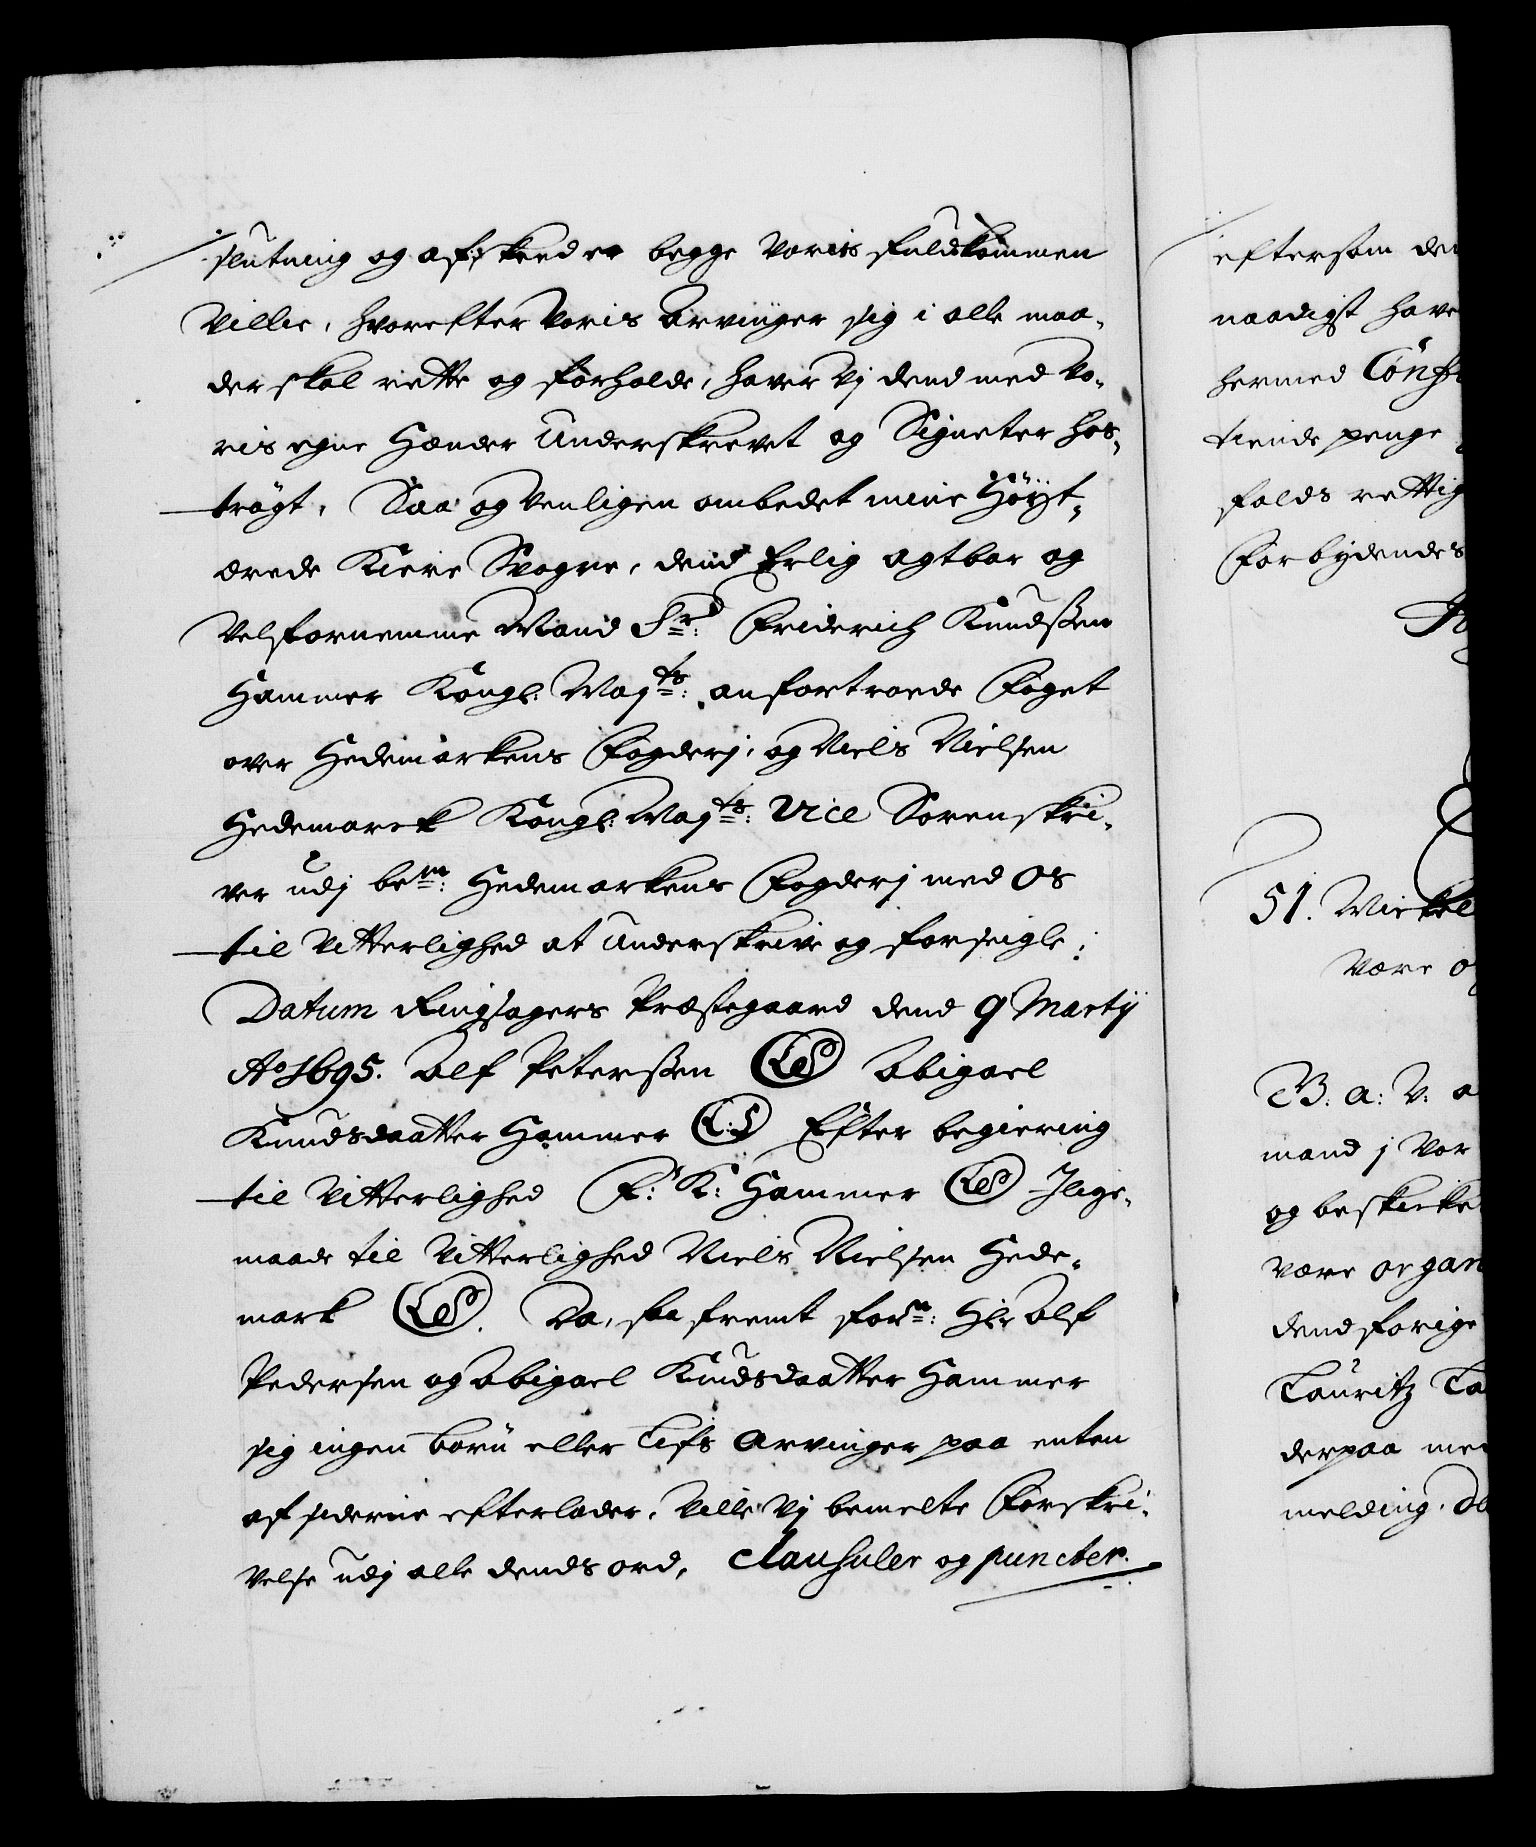 slutning og afskeed er begge Voris fuldkommen
Villie, hvorefter Voris Arvinger sig i alle maa-
der skal rette og forholde, haver Vj dend med Vo-
ris egne Hænder Underskrevet og Signeter hos-
trögt, Saa og Venligen ombedet mine Höyt-
ærede Kiere Svogre, dend Erlig agtbar og
Velfornemme Mand Sr: Friderich Knudssen
Hammer Kongl: Maÿts: anfortroede Foget
over Hedemarkens Fogderj, og Niels Nielsen
Hedemarck Kongl: Maÿts: Vice Sorenskri-
ver udj bem: Hedemarkens Fogderj med Os
til Vitterlighed at Underskrive og forseigle:
Datum Ringsagers Præstegaard dend 9 Martÿ
Ao 1695. Alf Peterssen LS Abigael
Knudsdaatter Hammer L:S Efter begiering
til Vitterlighed F: K: Hammer LS Jlige-
maade til Vitterlighed Niels Nielsen Hede-
mark LS. Da, saa fremt forn: Hr Alf
Pedersen og Abigael Knudsdaatter Hammer
sig ingen börn eller Lifs Arvinger paa enten
af siderne efterlader, Ville Vj bemelte Forskri-
velse udj alle dends ord, clausuler og puncter
eftersom de
naadigst have
hermed Conf
tiende penge
falds rettig
Forbydendes
51. Mickel
Være o
B: A: V: a
mand j Vor
og beskicke
Være organ
dend forige
Lauritz La
derpaa me
melding. D